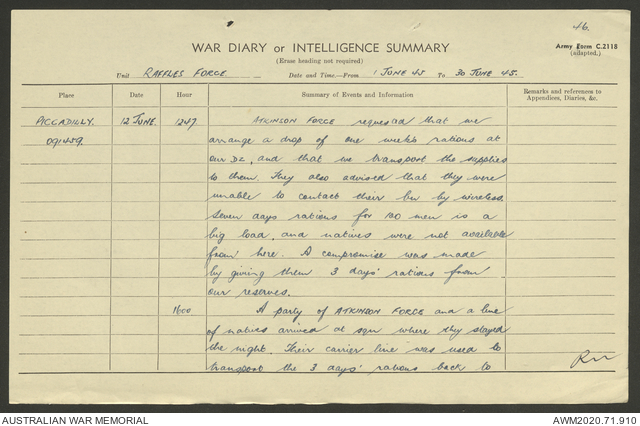 46.
WAR DIARY or INTELLIGENCE SUMMARY
Army Form C.2118
(adapted.)
(Erase heading not required)
Unit RAFFLES FORCE Date and Time.—From 1 JUNE 45 To 30 JUNE 45.
Place Date Hour Summary of Events and Information Remarks and references to
Appendices, Diaries, &c.
PICCADILLY. 12 JUNE. 1247. ATKINSON FORCE requested that we
091459. arrange a drop of one week's rations at
our DZ, and that we transport the supplies
to them. They also advised that they were
unable to contact their bn by wireless.
Seven days rations for 100 men is a
big load, and natives were not available
from here. A compromise was made
by giving them 3 days' rations from
our reserves.
1600 A party of ATKINSON FORCE and a line
of natives arrived at sqn where they stayed
the night. Their carrier line was used to
transport the 3 days' rations back to
AUSTRALIAN WAR MEMORIAL AWM2020.71.910